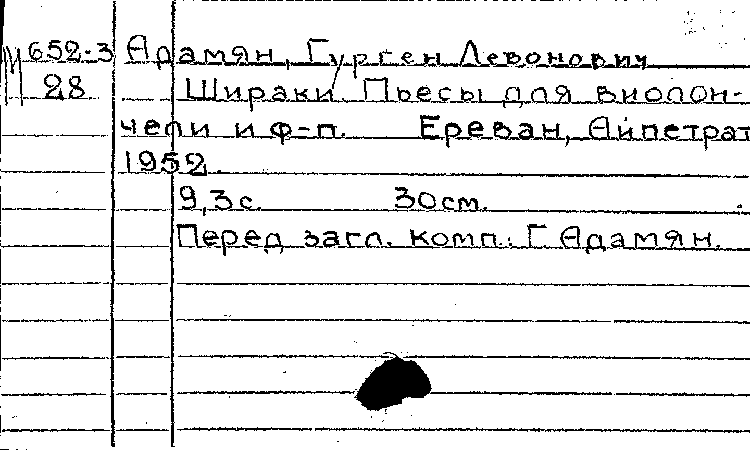 М 652-3 Адамян, Гурген Левонович
28 Шираки. Пьесы для виолон-
чели и ф-п. Ереван, Айпетрат
1952.
9,3с. 30см.
Перед загл. комп.: Г Адамян.